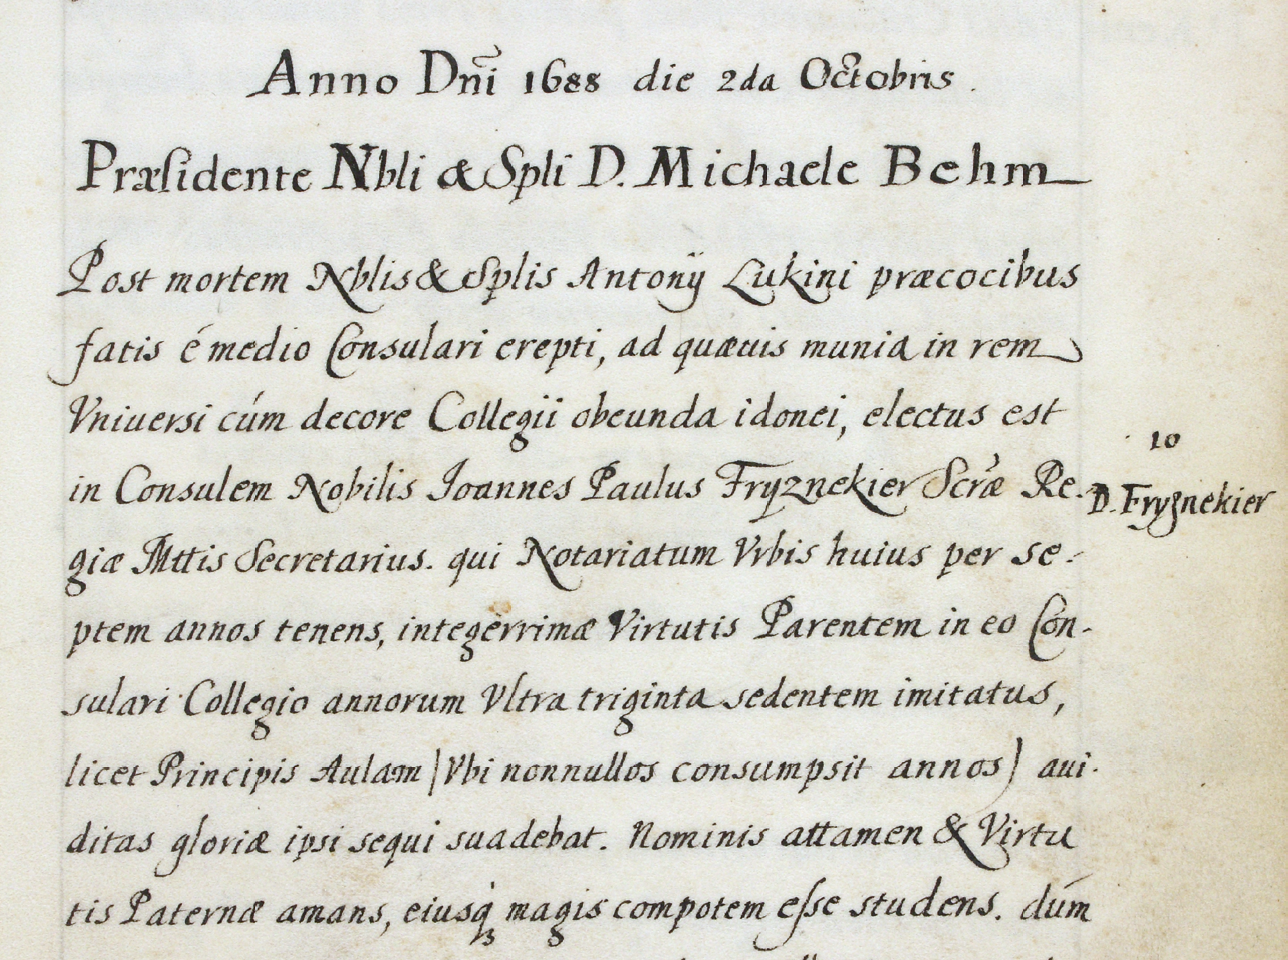 Anno Dni 1688 die 2da Octobris.
Præsidente Nbli & Spli D. Michaele Behm
Post mortem Nblis & Splis Antonÿ Lukini præcocibus
fatis é medio Consulari erepti, ad quævis munia in rem
Vniuersi cúm decore Collegii obeunda idonei, electus est
in Consulem Nobilis Joannes Paulus Fryznekier Scræ Re-
10
D. Fryznekier
giæ Mttis Secretarius. qui Notariatum Vrbis huius per se-
ptem annos tenens, integerrimæ Virtutis Parentem in eo Con-
sulari Collegio annorum Vltra triginta sedentem imitatus,
licet Principis Aulam (Vbi nonnullos consumpsit annos) aui-
ditas gloriæ ipsi sequi suadebat. Nominis attamen & Virtu
tis Paternæ amans, eiusq; magis compotem eſse studens. dúm